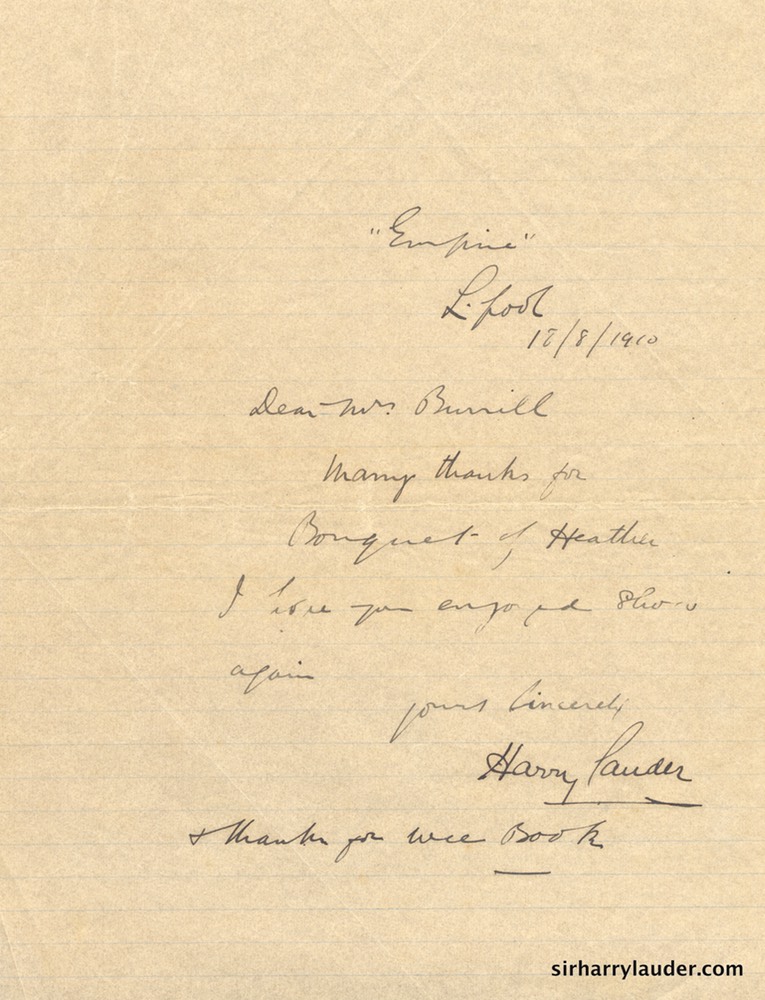 "Empire"
L.pool
18/8/1910
Dear Mrs. Burrill
Many thanks for
Bouquet of Heather
I hope you enjoyed Show
again
yours Sincerely
Harry Lauder
+ thanks for wee Book
sirharrylauder.com